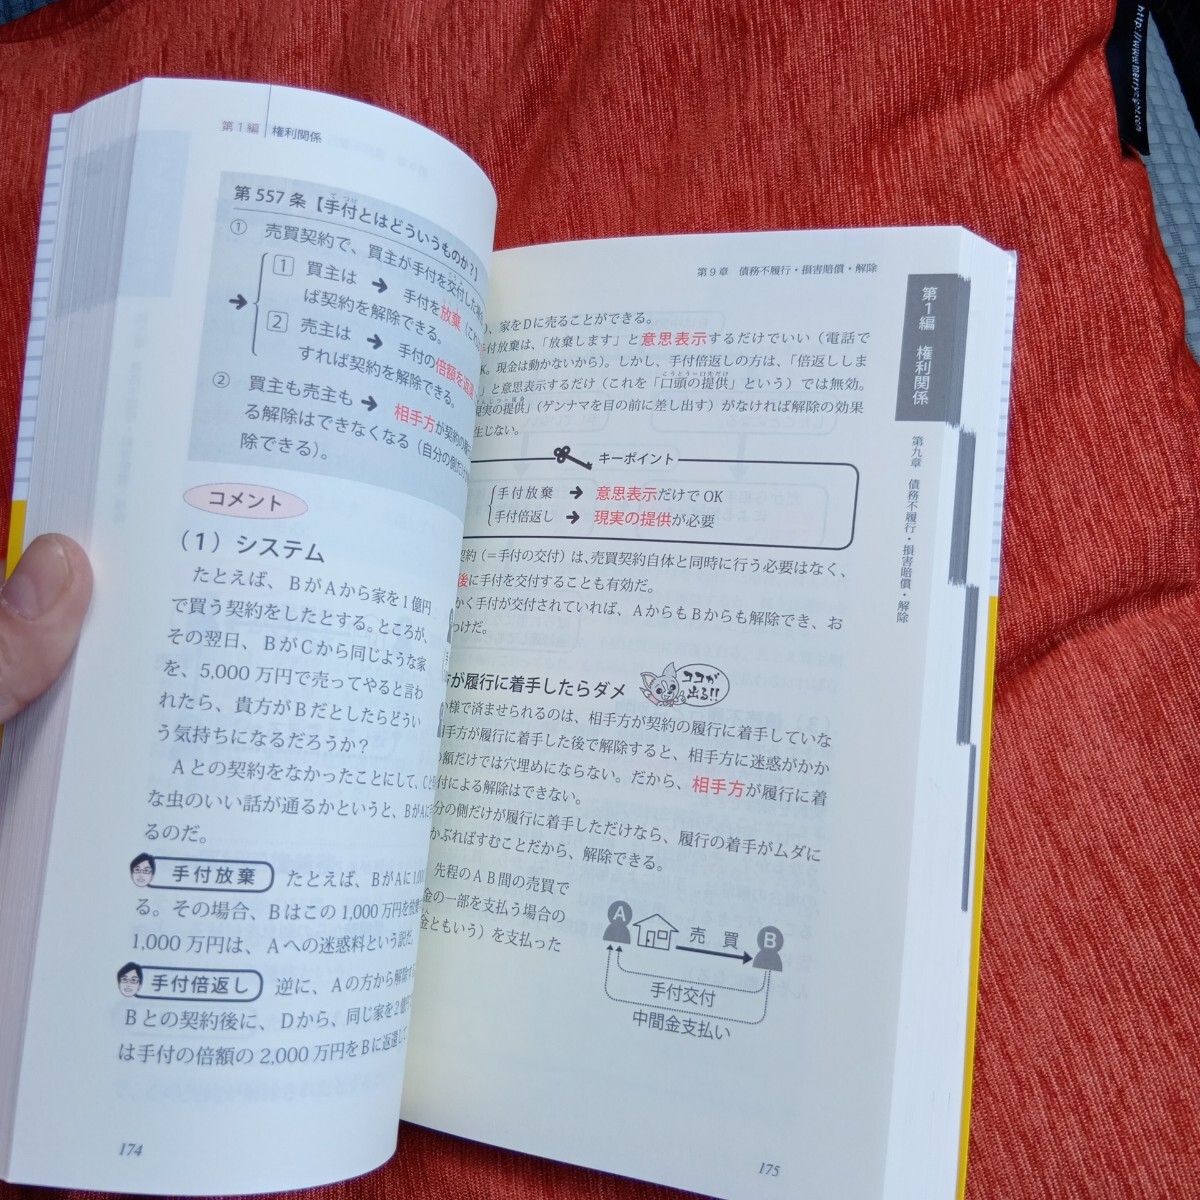 http://www.merrynight.com
第1編 権利関係
第 557 条【手付とはどういうものか?】
① 売買契約で、買主が手付を交付した
1 買主は ➔ 手付を放棄
ば契約を解除できる。
2 売主は ➔ 手付の倍額を
すれば契約を解除できる。
② 買主も売主も ➔ 相手方が契約の
る解除はできなくなる（自分の側だけ
除できる）。
コメント
（1）システム
たとえば、BがAから家を1億円
で買う契約をしたとする。ところが、
その翌日、BがCから同じような家
を、5,000 万円で売ってやると言わ
れたら、貴方がBだとしたらどうい
う気持ちになるだろうか?
Aとの契約をなかったことにして、C
な虫のいい話が通るかというと、BがAに
るのだ。
手付放棄 たとえば、BがAに
る。その場合、Bはこの 1,000万円を
1,000 万円は、Aへの迷惑料という訳だ。
手付倍返し 逆に、Aの方から解除
Bとの契約後に、Dから、同じ家を2億
は手付の倍額の 2,000 万円をBに返還して
174
第9章 債務不履行・損害賠償・解除
、家をDに売ることができる。
手付放棄は、「放棄します」と意思表示するだけでいい（電話で
K。現金は動かないから）。しかし、手付倍返しの方は、「倍返ししま
」と意思表示するだけ（これを「口頭の提供」という）では無効。
こうとう＝口先だけ
現実の提供」（ゲンナマを目の前に差し出す）がなければ解除の効果
生じない。
キーポイント
手付放棄 ➔ 意思表示だけで OK
手付倍返し ➔ 現実の提供が必要
契約（＝手付の交付）は、売買契約自体と同時に行う必要はなく、
後に手付を交付することも有効だ。
かく手付が交付されていれば、AからもBからも解除でき、お
つけだ。
方が履行に着手したらダメ
ココが出る!!
様で済ませられるのは、相手方が契約の履行に着手していな
手方が履行に着手した後で解除すると、相手方に迷惑がかか
額だけでは穴埋めにならない。だから、相手方が履行に着
付による解除はできない。
分の側だけが履行に着手しただけなら、履行の着手がムダに
かぶればすむことだから、解除できる。
先程のAB間の売買で
金の一部を支払う場合の
金ともいう）を支払った
A 売買 B
手付交付
中間金支払い
175
第1編 権利関係
第九章 債務不履行・損害賠償・解除